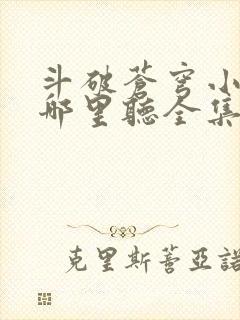 斗破蒼穹小
哪里聽全集
克里斯蒂亞諾